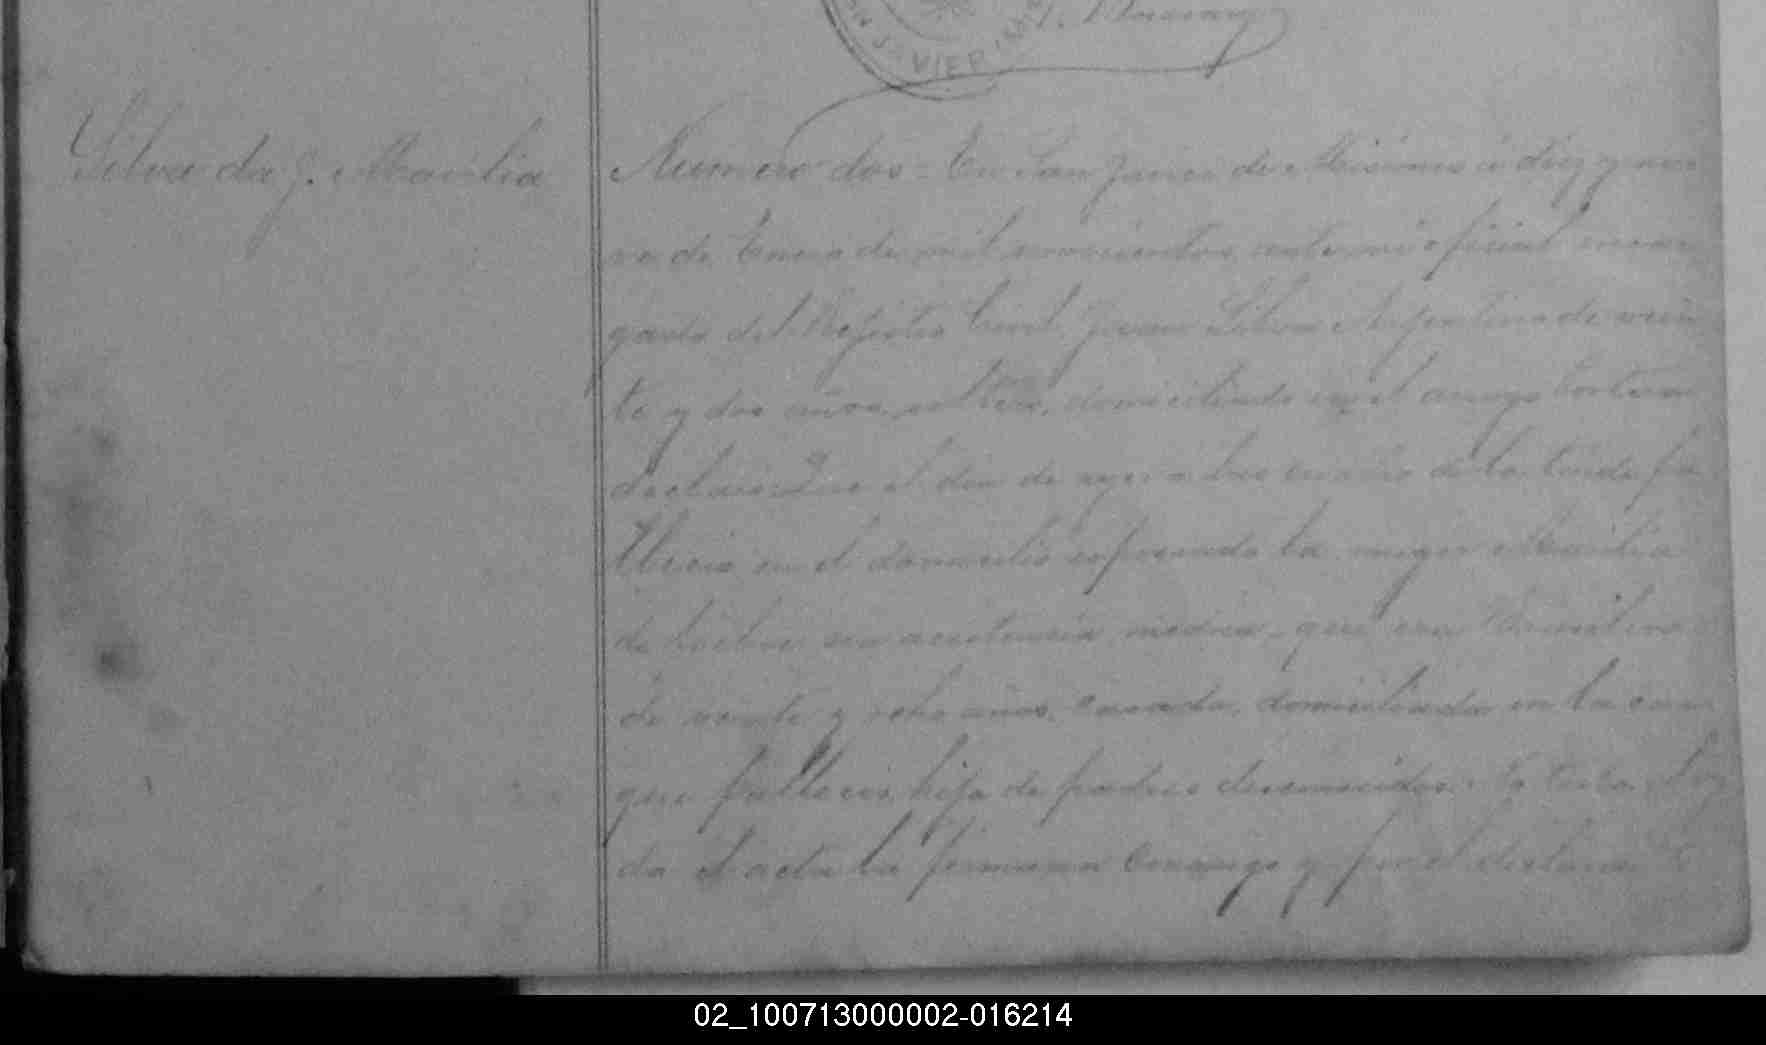 SAN JAVIER
Silva da J. Maurilia
Numero dos = En San Javier de Misiones á diez y nue
ve de Enero de mil novecientos, ante mi oficial encar
gado del Registro Civil, Juan Silva Argentino de vein
te y dos años, soltero, domiciliado en el arroyo
declaró: Que el dia de ayer a las cuatro de la tarde fa
lleció en el domicilio espresado la mujer Maurilia
de sin asistencia medica, que era
de veinte y ocho años, casada, domiciliada en la casa
que falleció, hija de padres desconocidos. No testa. Lei
da el acta la firmaron conmigo y por el declarante
02_100713000002-016214